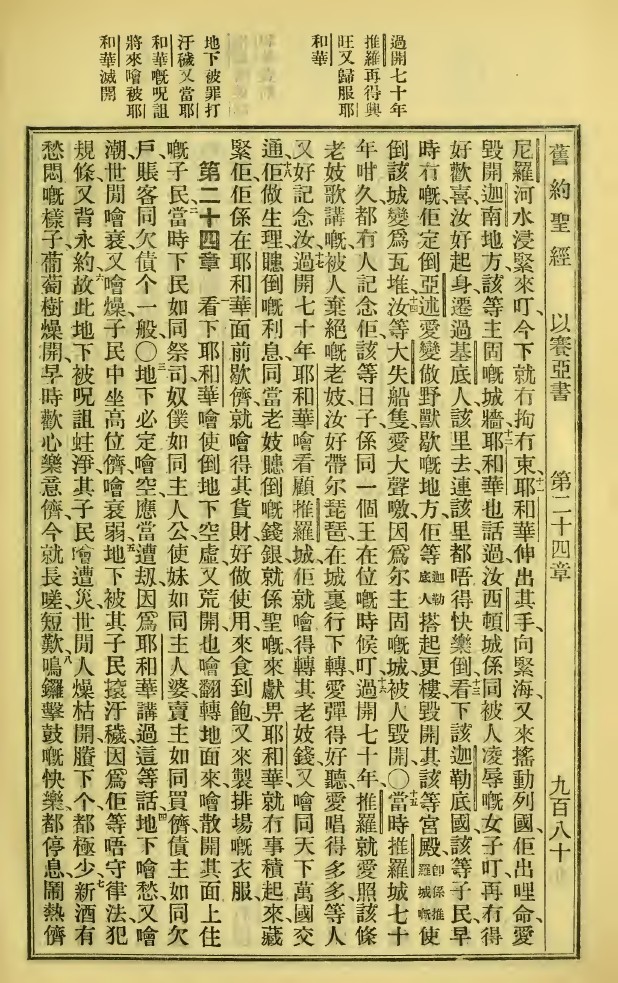 舊約聖經 以賽亞書 第二十四章 九百八十
過開七十年
推羅再得興
旺又歸服耶
和華
地下被罪打
汙穢又當耶
和華嘅呪詛
將來噲被耶
和華滅開
尼羅河水浸緊來叮今下就冇拘冇束十一耶和華伸出其手向緊海又來搖動列國佢出哩命愛
毀開迦南地方該等主固嘅城牆十二耶和華也話過汝西頓城係同被人凌辱嘅女子叮再冇得
好歡喜汝好起身遷過基底人該里去連該里都唔得快樂倒十三看下該迦勒底國該等子民早
時冇嘅佢定倒亞述愛變做野獸歇嘅地方佢等迦勒底人搭起更樓毀開其該等宮殿卽係推羅城嘅使
倒該城變爲瓦堆十四汝等大失船隻愛大聲噭因爲尔主固嘅城被人毀開〇十五當時推羅城七十
年咁久都冇人記念佢該等日子係同一個王在位嘅時候叮過開七十年推羅就愛照該條
老妓歌講嘅十六被人棄絕嘅老妓汝好帶尔琵琶在城裏行下轉愛彈得好聽愛唱得多多等人
又好記念汝十七過開七十年耶和華噲看顧推羅城佢就噲得轉其老妓錢又噲同天下萬國交
通佢做生理十八賺倒嘅利息同當老妓賺倒嘅錢銀就係聖嘅來獻畀耶和華就冇事積起來藏
緊佢佢係在耶和華面前歇儕就噲得其貨財好做使用來食到飽又來製排場嘅衣服
第二十四章 一看下耶和華噲使倒地下空虛又荒開也噲翻轉地面來噲散開其面上住
嘅子民二當時下民如同祭司奴僕如同主人公使妹如同主人婆賣主如同買儕債主如同欠
戶賬客同欠債个一般〇三地下必定噲空應當遭刧因爲耶和華講過這等話四地下噲愁又噲
潮世閒噲衰又噲燥子民中坐高位儕噲衰弱五地下被其子民㨰汙穢因爲佢等唔守律法犯
規條又背永約六故此地下被呪詛蛀淨其子民噲遭災世閒人燥枯開賸下个都極少七新酒有
愁悶嘅樣子葡萄樹燥開早時歡心樂意儕今就長嗟短歎八鳴鑼擊鼓嘅快樂都停息鬧熱儕